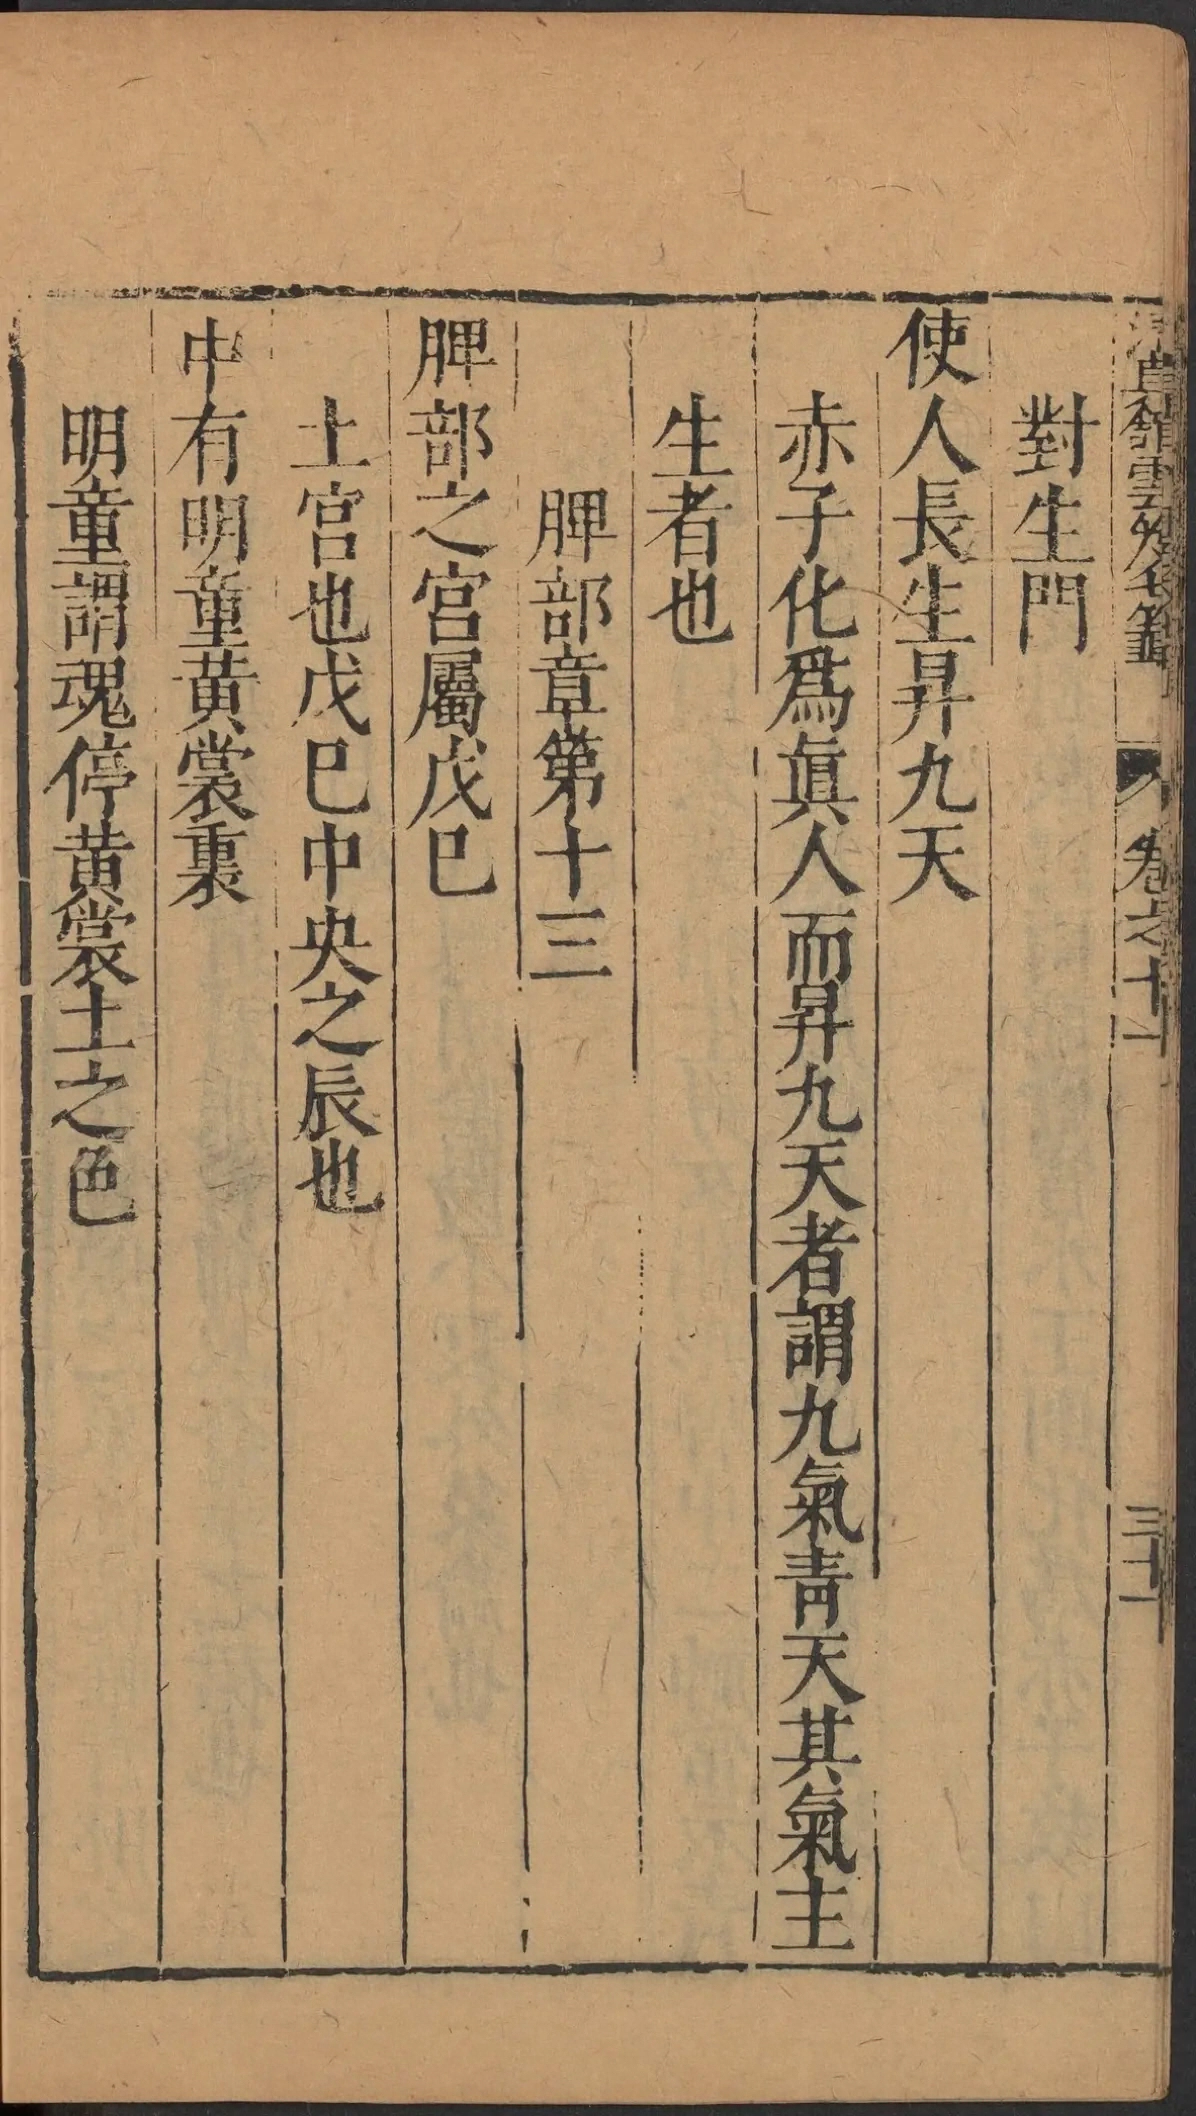 對生門
使人長生昇九天
赤子化爲眞人而昇九天者謂九氣靑天其氣主
生者也
脾部章第十三
脾部之宮屬戊巳
土宮也戊巳中央之辰也
中有明童黄裳裏
明童謂魂停黄裳土之色
卷之十一
三十一